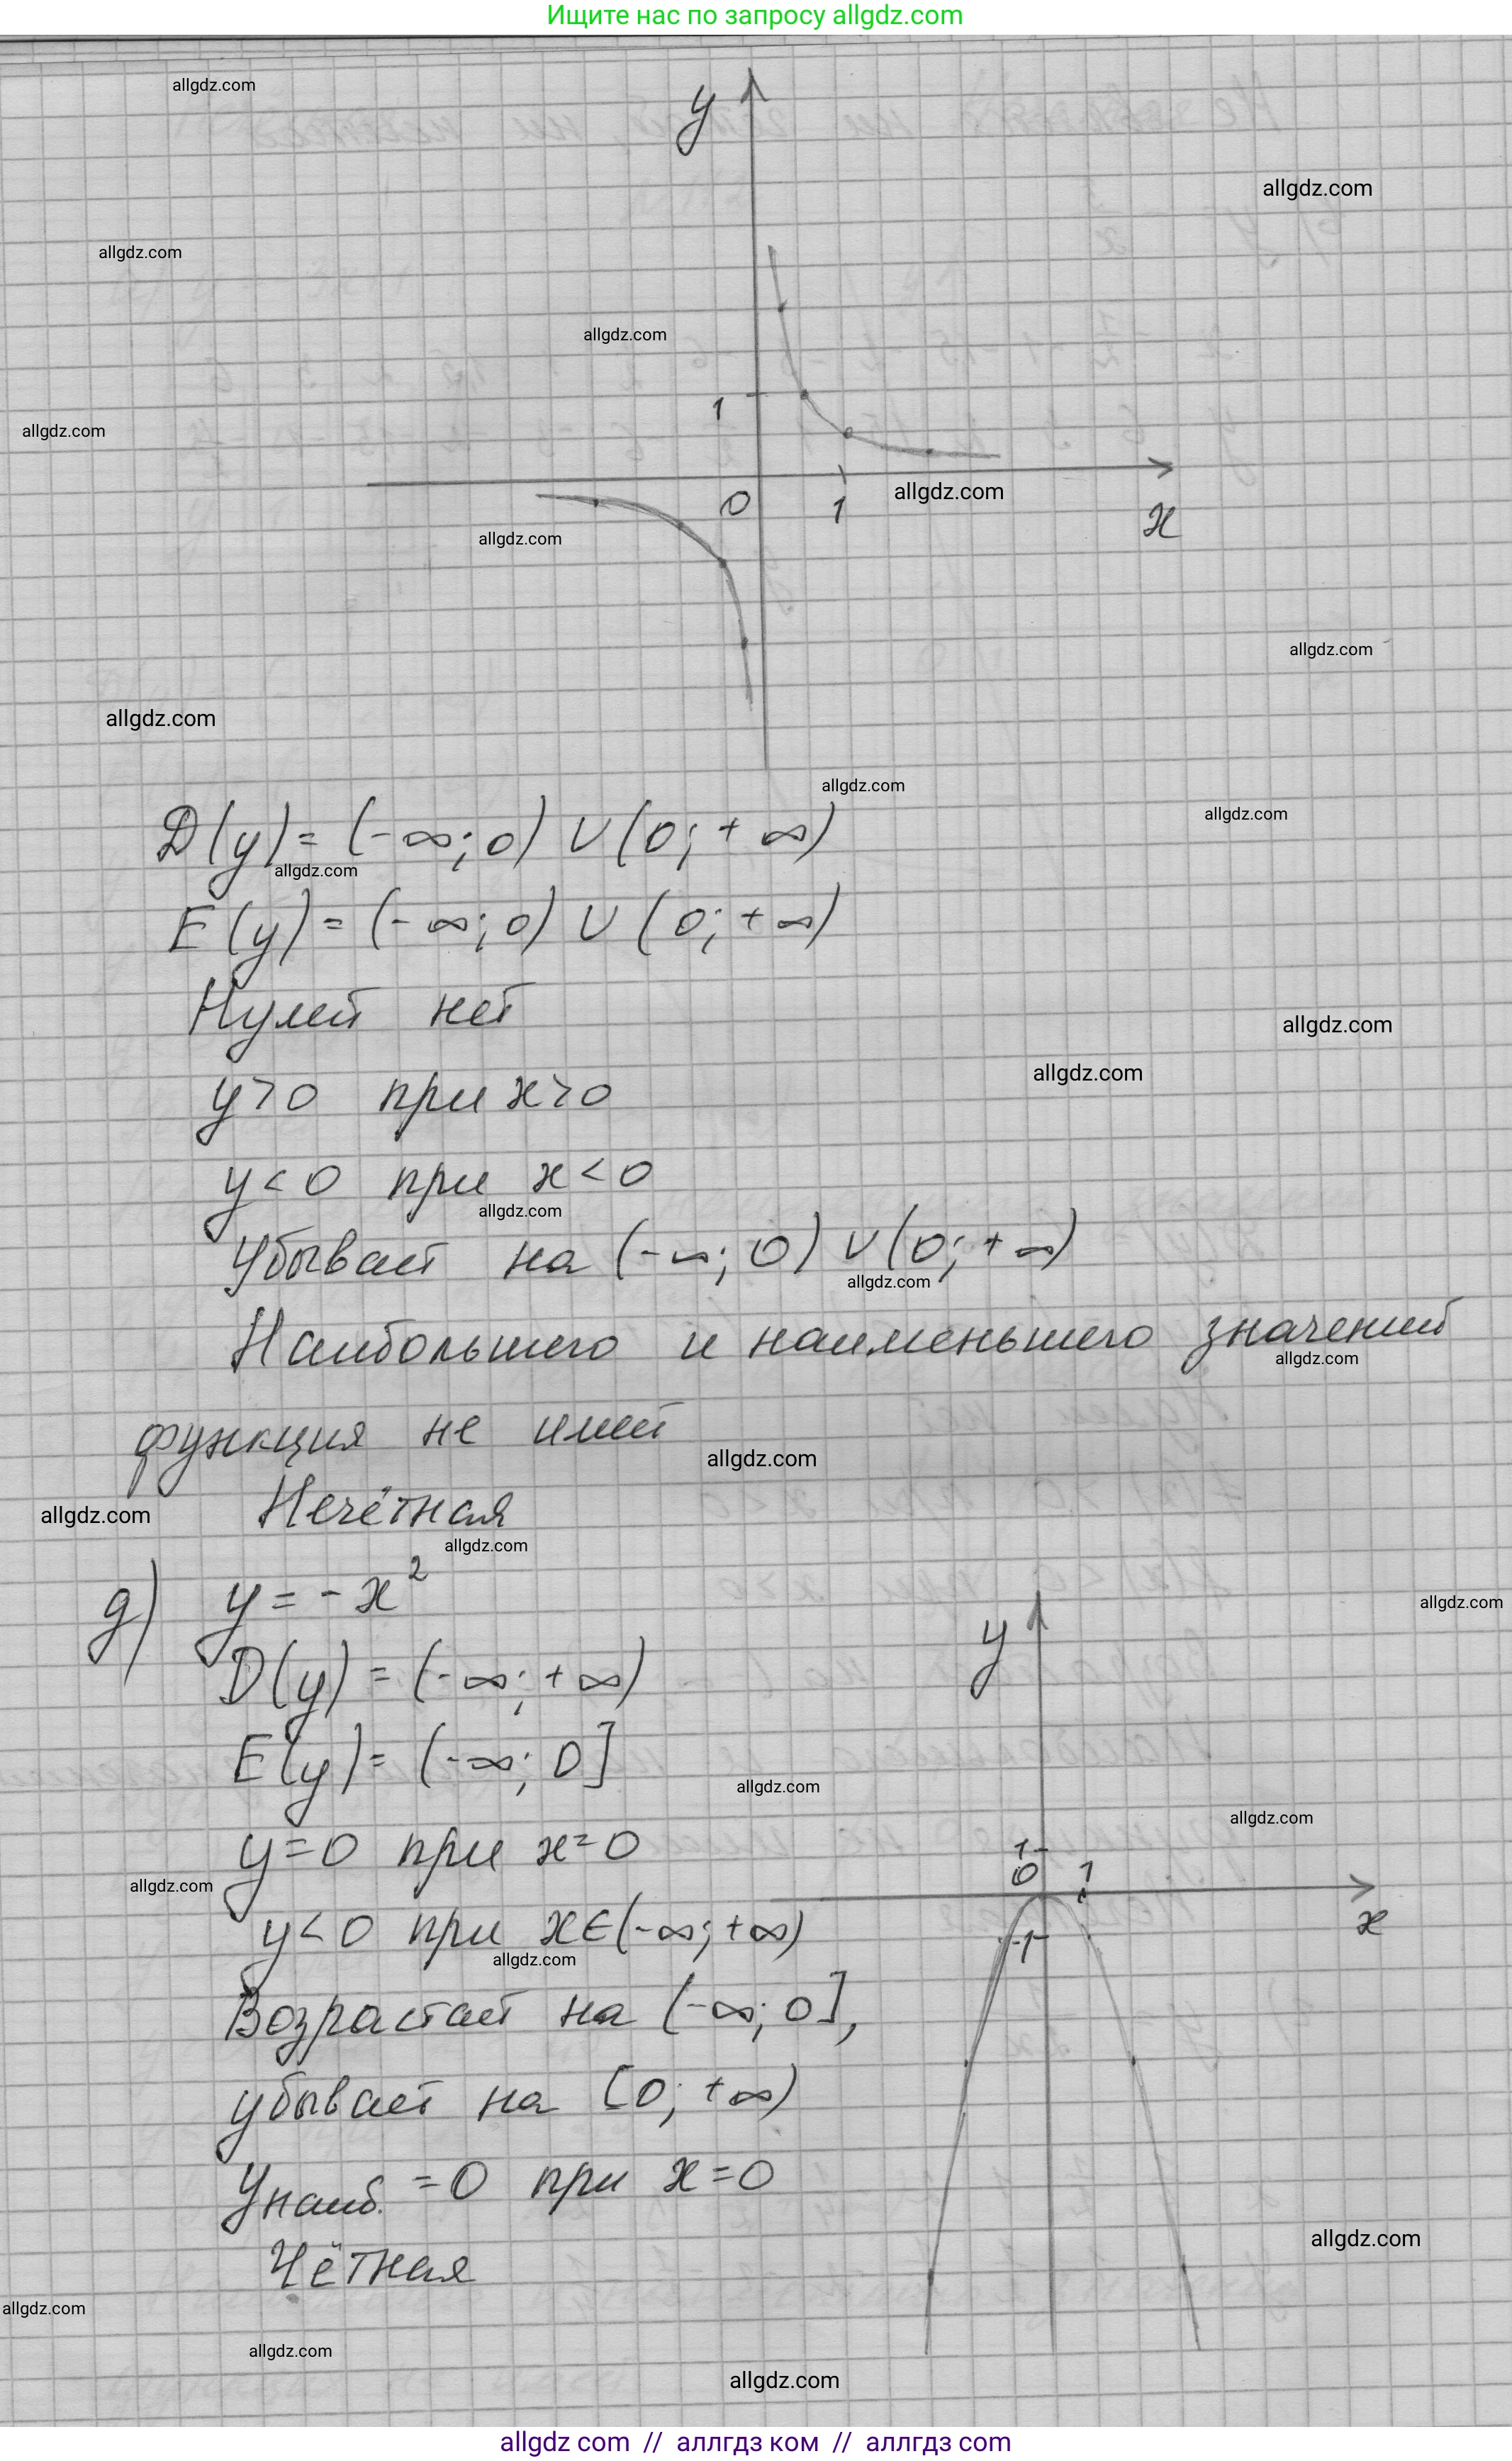 Ищите нас по запросу allgdz.com
allgdz.com
y
allgdz.com
allgdz.com
allgdz.com
1
allgdz.com
0
1
allgdz.com
x
allgdz.com
allgdz.com
allgdz.com
allgdz.com
allgdz.com
D(y)= (-∞; 0) ∪ (0; +∞)
allgdz.com
E(y)= (-∞; 0) ∪ (0; +∞)
Нулей нет
allgdz.com
allgdz.com
y>0 при x>0
y<0 при x<0
allgdz.com
Убывает на (-∞; 0) ∪ (0; +∞)
allgdz.com
Наибольшего и наименьшего значений
allgdz.com
функция не имеет
allgdz.com
allgdz.com
Нечётная
allgdz.com
д) y = -x²
allgdz.com
y
D(y)= (-∞; +∞)
E(y)= (-∞; 0]
allgdz.com
allgdz.com
y=0 при x=0
1
0
1
allgdz.com
x
y<0 при x∈(-∞; +∞)
-1
allgdz.com
Возрастает на (-∞; 0],
убывает на [0; +∞)
yнаиб. =0 при x=0
allgdz.com
Чётная
allgdz.com
allgdz.com
allgdz.com
allgdz com // аллгдз ком // аллгдз com